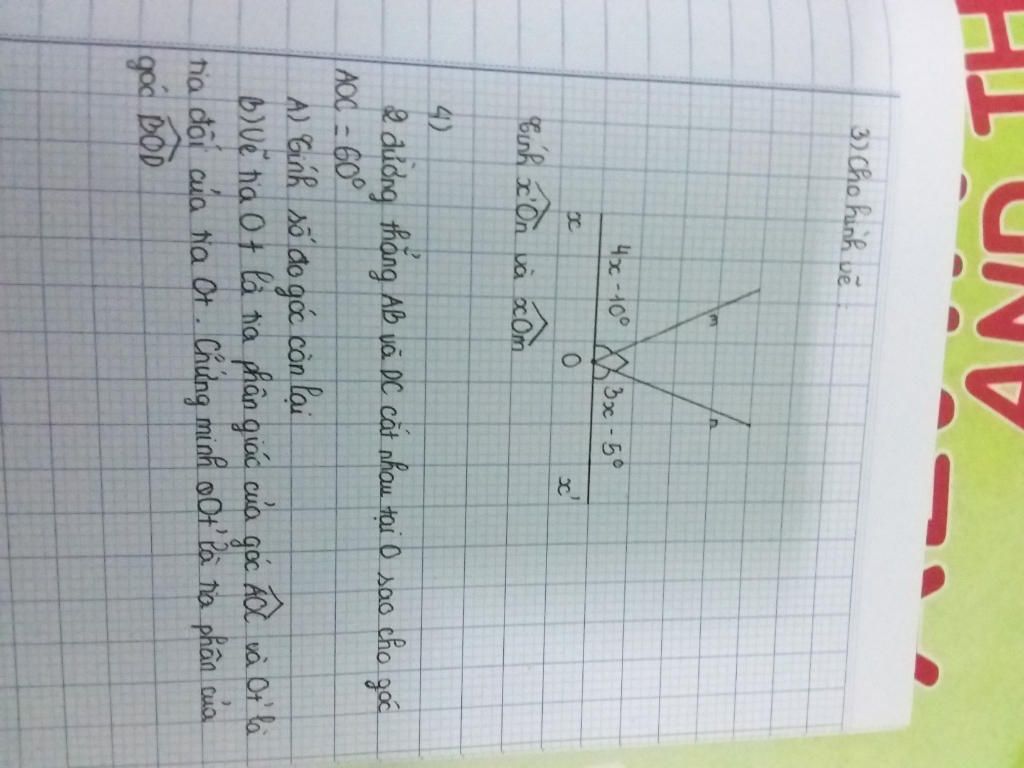 3) Cho hình vẽ :
m
n
4x - 10°
3x - 5°
x
O
x'
Tính x'On và xOm
4)
2 đường thẳng AB và DC cắt nhau tại O sao cho góc
AOC = 60°
A) Tính số đo góc còn lại
B) Vẽ tia Ot là tia phân giác của góc AOC và Ot' là
tia đối của tia Ot. Chứng minh Ot' là tia phân của
góc BOD
AND TH